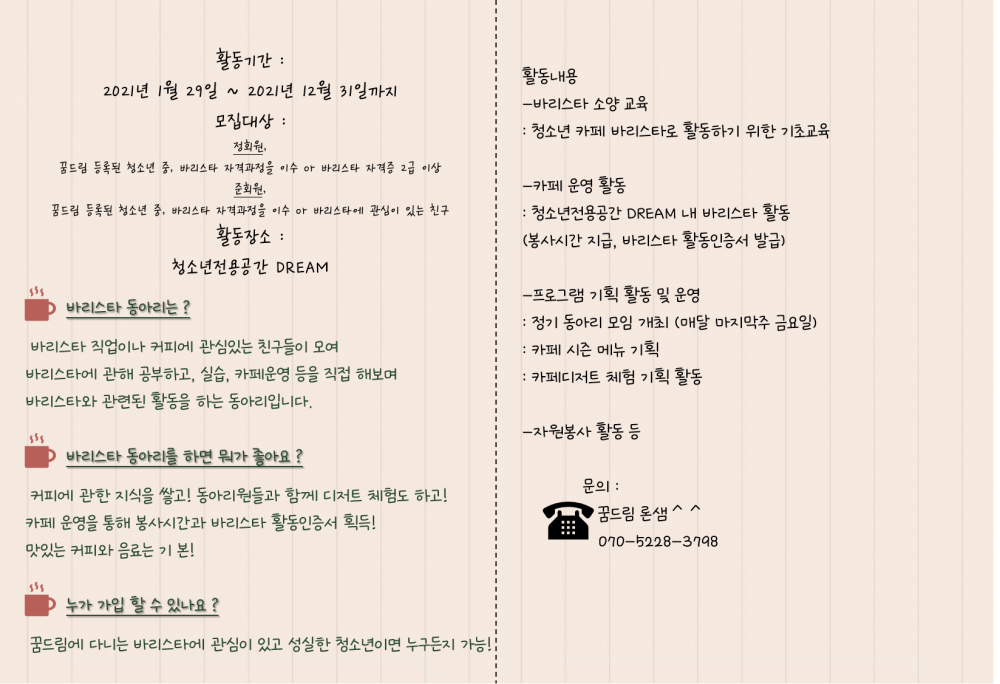 활동기간 :
2021년 1월 29일 ~ 2021년 12월 31일까지
모집대상 :
정회원,
꿈드림 등록된 청소년 중, 바리스타 자격과정을 이수 or 바리스타 자격증 2급 이상
준회원,
꿈드림 등록된 청소년 중, 바리스타 자격과정을 이수 or 바리스타에 관심이 있는 친구
활동장소 :
청소년전용공간 DREAM
바리스타 동아리는 ?
바리스타 직업이나 커피에 관심있는 친구들이 모여
바리스타에 관해 공부하고, 실습, 카페운영 등을 직접 해보며
바리스타와 관련된 활동을 하는 동아리입니다.
바리스타 동아리를 하면 뭐가 좋아요 ?
커피에 관한 지식을 쌓고! 동아리원들과 함께 디저트 체험도 하고!
카페 운영을 통해 봉사시간과 바리스타 활동인증서 획득!
맛있는 커피와 음료는 기 본!
누가 가입 할 수 있나요 ?
꿈드림에 다니는 바리스타에 관심이 있고 성실한 청소년이면 누구든지 가능!
활동내용
-바리스타 소양 교육
: 청소년 카페 바리스타로 활동하기 위한 기초교육
-카페 운영 활동
: 청소년전용공간 DREAM 내 바리스타 활동
(봉사시간 지급, 바리스타 활동인증서 발급)
-프로그램 기획 활동 및 운영
: 정기 동아리 모임 개최 (매달 마지막주 금요일)
: 카페 시즌 메뉴 기획
: 카페디저트 체험 기획 활동
-자원봉사 활동 등
문의 :
꿈드림 론샘 ^ ^
070-5228-3798